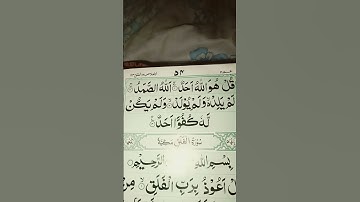 ٥٤
قُلْ هُوَ اللّٰهُ اَحَدٌ ۚ اَللّٰهُ الصَّمَدُ ۚ
لَمْ يَلِدْ ۙ وَلَمْ يُوْلَدْ ۙ وَلَمْ يَكُنْ
لَّهٗ كُفُوًا اَحَدٌ
سُوْرَةُ الْفَلَقِ مَكِّيَّةٌ
بِسْمِ اللّٰهِ الرَّحِيْمِ
اَعُوْذُ بِرَبِّ الْفَلَقِ ۙ مِنْ